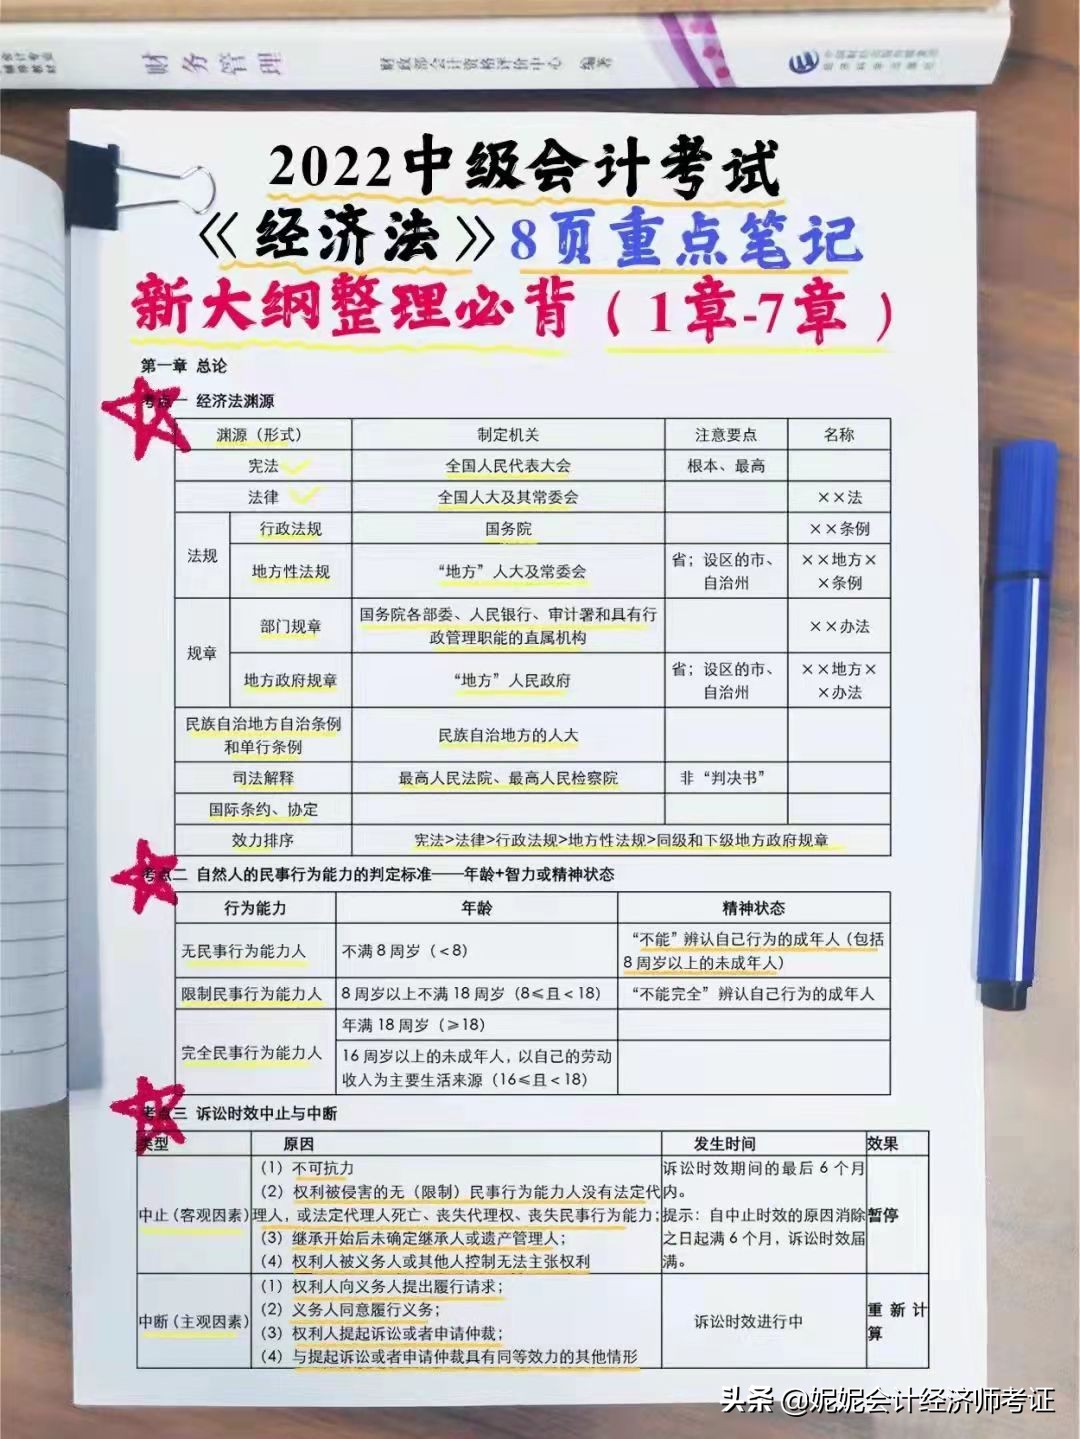 财务管理
财政部会计资格评价中心 编著
2022中级会计考试
《经济法》8页重点笔记
新大纲整理必背（1章-7章）
第一章 总论
考点一 经济法渊源
渊源（形式） 制定机关 注意要点 名称
宪法 全国人民代表大会 根本、最高
法律 全国人大及其常委会 ××法
法规 行政法规 国务院 ××条例
地方性法规 “地方”人大及常委会 省；设区的市、 ××地方×
自治州 ×条例
规章 部门规章 国务院各部委、人民银行、审计署和具有行 ××办法
政管理职能的直属机构
地方政府规章 “地方”人民政府 省；设区的市、 ××地方×
自治州 ×办法
民族自治地方自治条例 民族自治地方的人大
和单行条例
司法解释 最高人民法院、最高人民检察院 非“判决书”
国际条约、协定
效力排序 宪法>法律>行政法规>地方性法规>同级和下级地方政府规章
考点二 自然人的民事行为能力的判定标准——年龄+智力或精神状态
行为能力 年龄 精神状态
无民事行为能力人 不满 8 周岁（<8） “不能”辨认自己行为的成年人（包括
8 周岁以上的未成年人）
限制民事行为能力人 8 周岁以上不满 18 周岁（8≤且<18） “不能完全”辨认自己行为的成年人
完全民事行为能力人 年满 18 周岁（≥18）
16 周岁以上的未成年人，以自己的劳动
收入为主要生活来源（16≤且<18）
考点三 诉讼时效中止与中断
类型 原因 发生时间 效果
中止（客观因素） （1）不可抗力 诉讼时效期间的最后 6 个月 暂停
（2）权利被侵害的无（限制）民事行为能力人没有法定代 内。
理人，或法定代理人死亡、丧失代理权、丧失民事行为能力； 提示：自中止时效的原因消除
（3）继承开始后未确定继承人或遗产管理人； 之日起满 6 个月，诉讼时效届
（4）权利人被义务人或其他人控制无法主张权利 满。
中断（主观因素） （1）权利人向义务人提出履行请求； 诉讼时效进行中 重新计
（2）义务人同意履行义务； 算
（3）权利人提起诉讼或者申请仲裁；
（4）与提起诉讼或者申请仲裁具有同等效力的其他情形
头条 @妮妮会计经济师考证